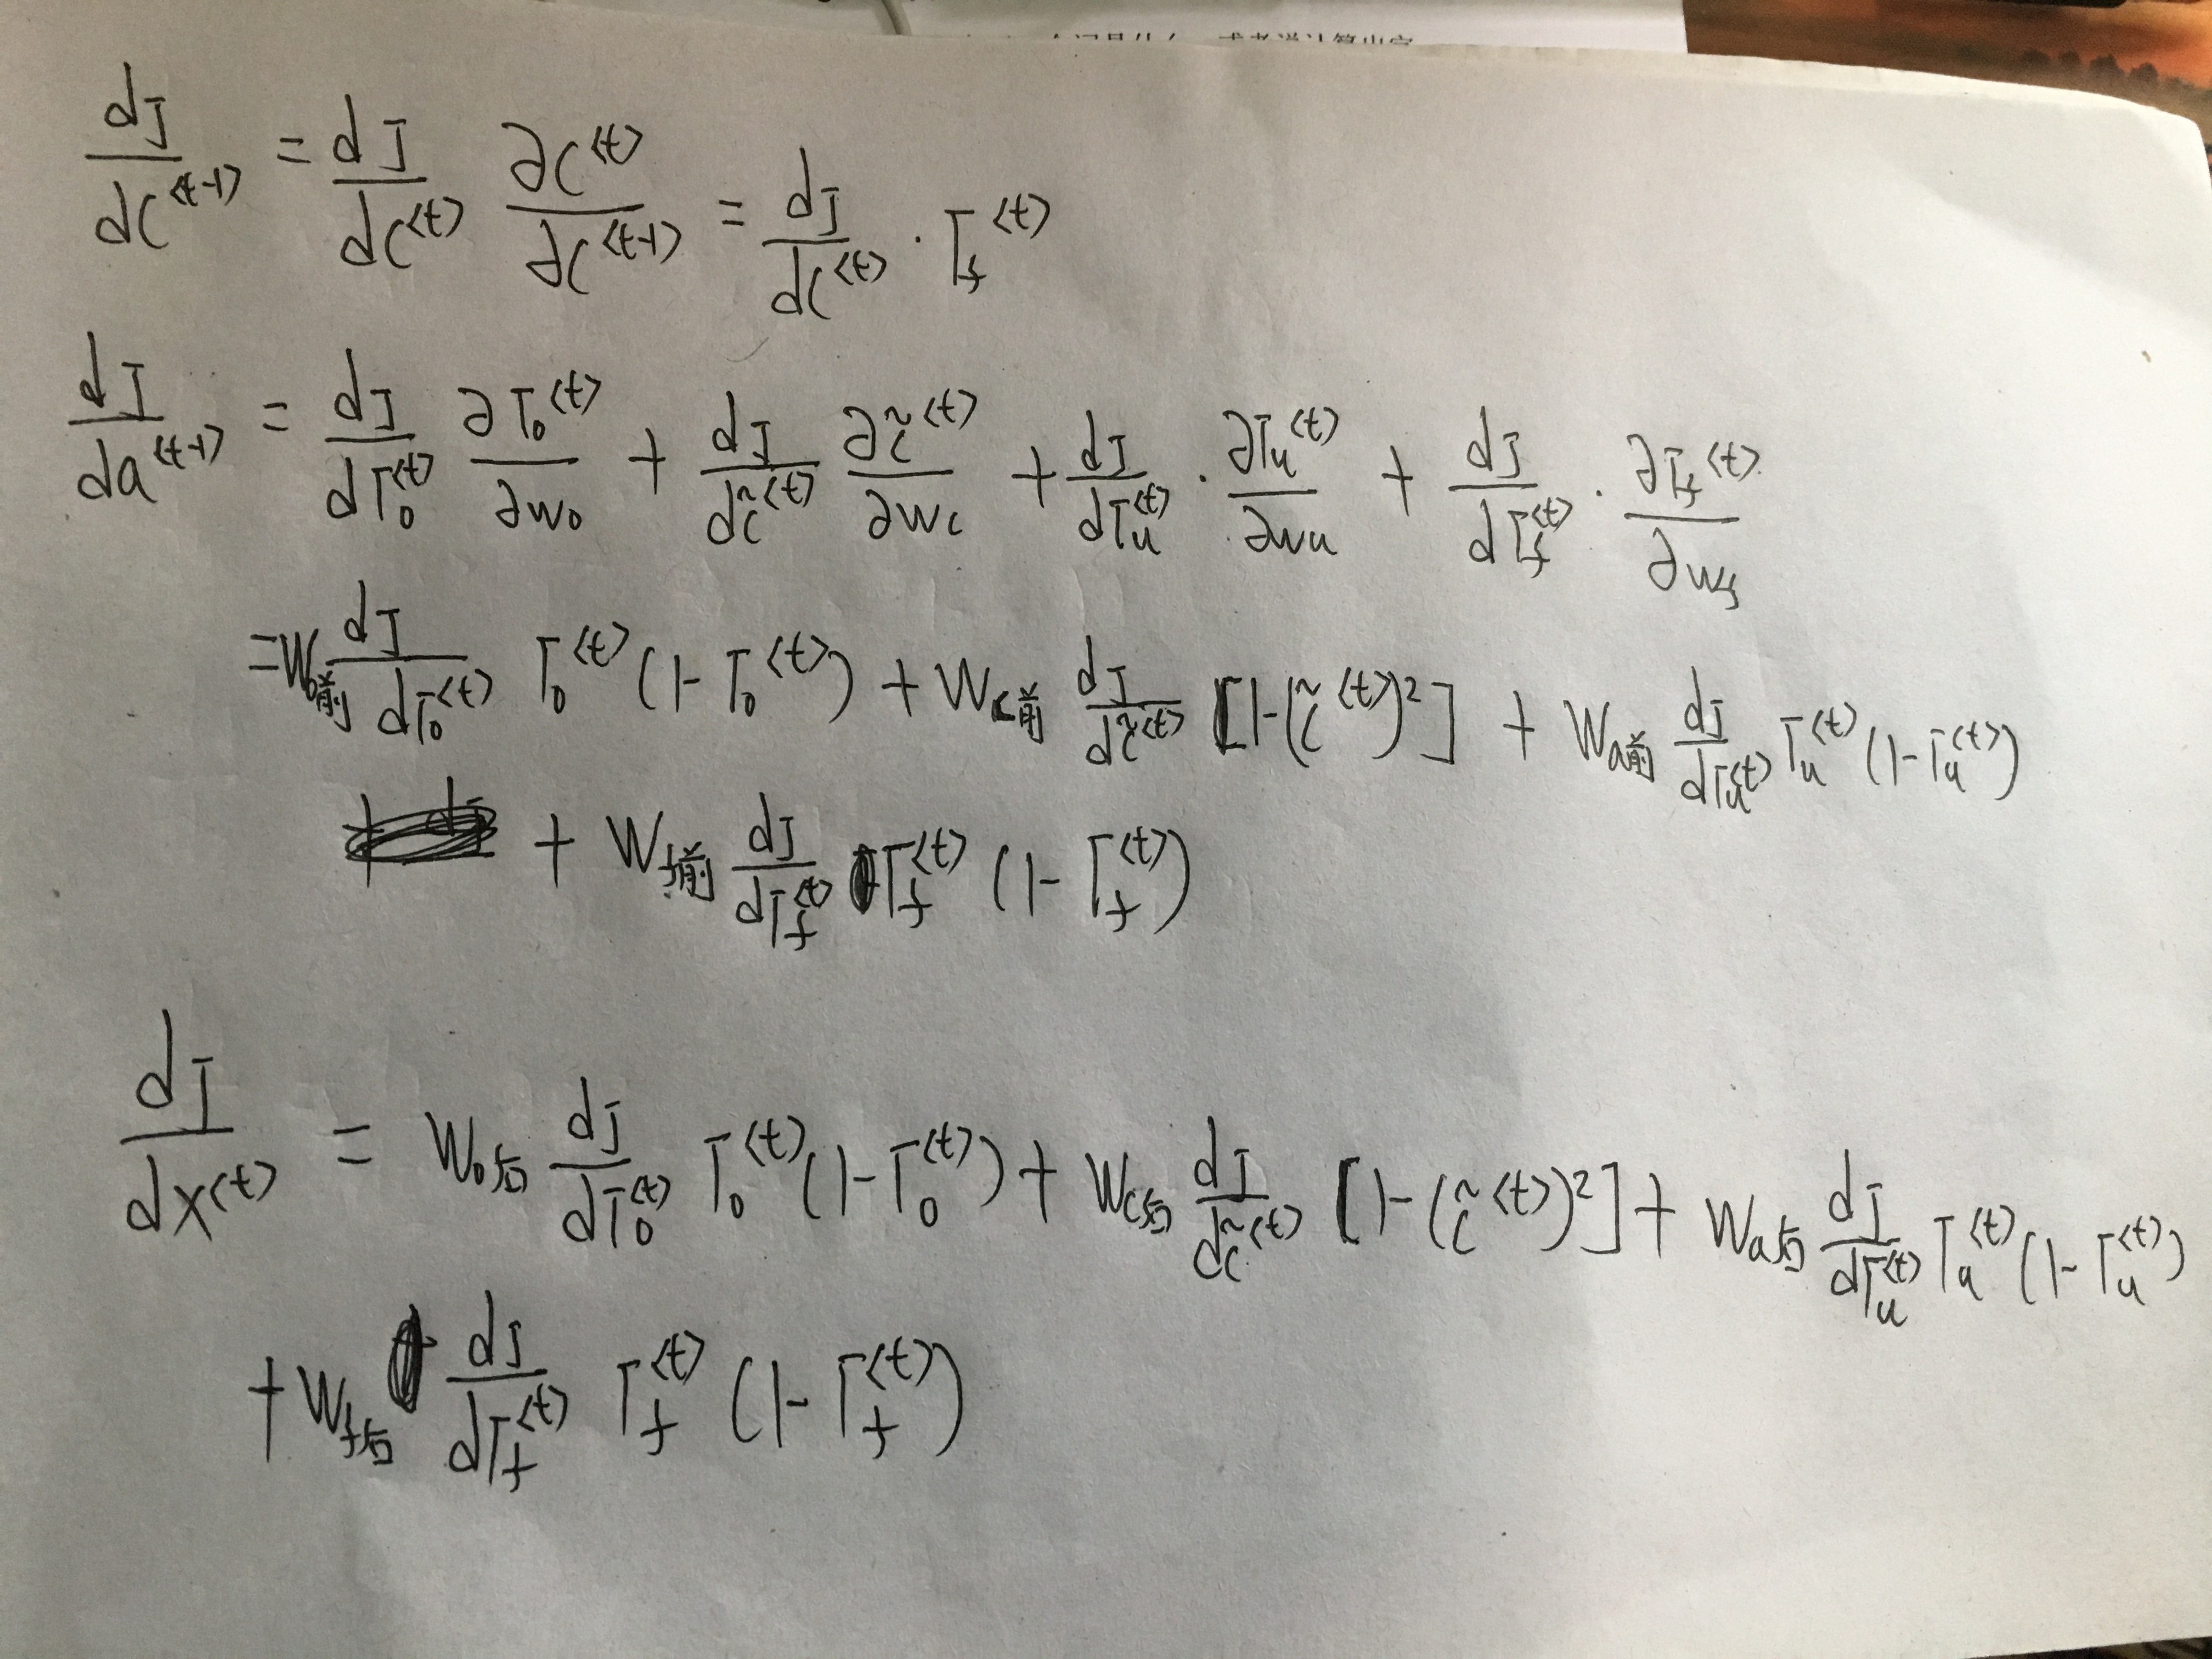 dJ/dc^<t-1> = dJ/dc^<t> ∂c^<t>/∂c^<t-1> = dJ/dc^<t> · Γ_f^<t>
dJ/da^<t-1> = dJ/dΓ_o^<t> ∂Γ_o^<t>/∂w_o + dJ/dc̃^<t> ∂c̃^<t>/∂w_c + dJ/dΓ_u^<t> · ∂Γ_u^<t>/∂w_u + dJ/dΓ_f^<t> · ∂Γ_f^<t>/∂w_f
= W_o前 dJ/dΓ_o^<t> Γ_o^<t> (1-Γ_o^<t>) + W_c前 dJ/dc̃^<t> [1-(c̃^<t>)²] + W_u前 dJ/dΓ_u^<t> Γ_u^<t> (1-Γ_u^<t>)
+ W_f前 dJ/dΓ_f^<t> Γ_f^<t> (1-Γ_f^<t>)
dJ/dx^<t> = W_o后 dJ/dΓ_o^<t> Γ_o^<t> (1-Γ_o^<t>) + W_c后 dJ/dc̃^<t> [1-(c̃^<t>)²] + W_u后 dJ/dΓ_u^<t> Γ_u^<t> (1-Γ_u^<t>)
+ W_f后 dJ/dΓ_f^<t> Γ_f^<t> (1-Γ_f^<t>)